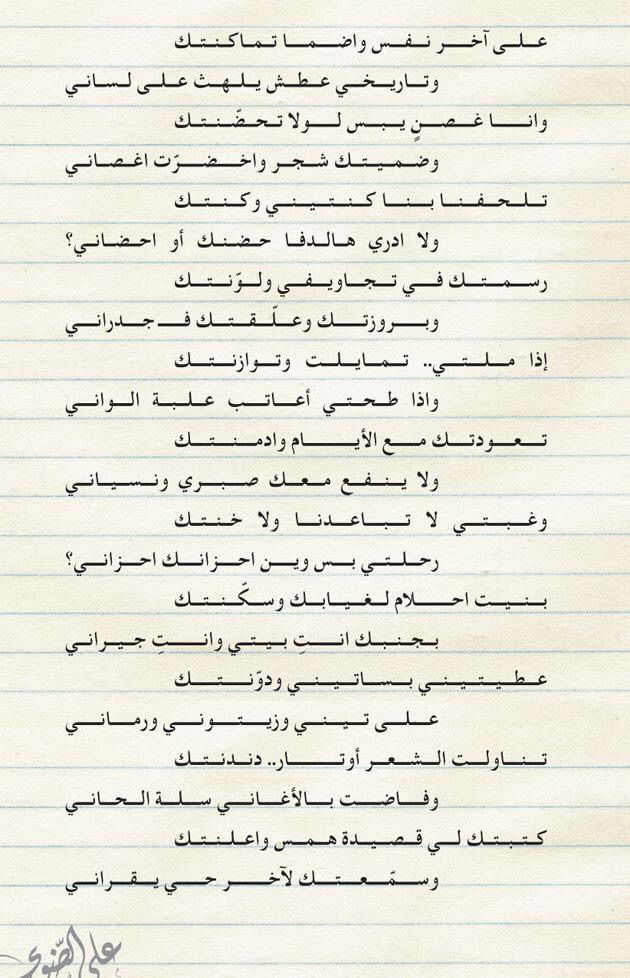 على آخر نفس واضما تماكنتك
وتاريخي عطش يلهث على لساني
وانا غصنٍ يبس لولا تحضّنتك
وضميتك شجر واخضرّت اغصاني
تلحفنا بنا كنتيني وكنتك
ولا ادري هالدفا حضنك أو احضاني؟
رسمتك في تجاويفي ولوّنتك
وبروزتك وعلّقتك فـ جدراني
إذا ملتي.. تمايلت وتوازنتك
واذا طحتي أعاتب علبة الواني
تعودتك مع الأيام وادمنتك
ولا ينفع معك صبري ونسياني
وغبتي لا تباعدنا ولا خنتك
رحلتي بس وين احزانك احزاني؟
بنيت احلام لغيابك وسكّنتك
بجنبك انتِ بيتي وانتِ جيراني
عطيتيني بساتيني ودوّنتك
على تيني وزيتوني ورماني
تناولت الشعر أوتار.. دندنتك
وفاضت بالأغاني سلة الحاني
كتبتك لي قصيدة همس واعلنتك
وسمّعتك لآخر حي يقراني
علي الضّوي